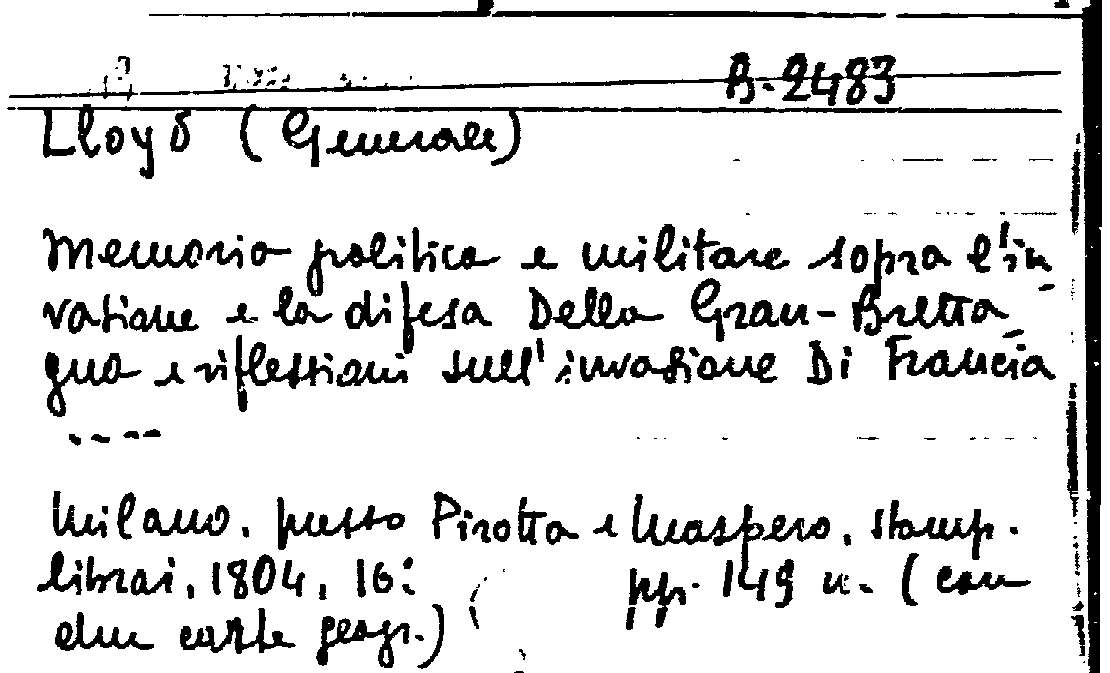 B.2483
Lloyd (Generale)
Memoria politica e militare sopra l'in
vasione e la difesa Della Gran-Bretta_
gna e riflessioni sull'invasione Di Francia
----
Milano. presso Pirotta e Maspero, stamp.
librai, 1804, 16: pp. 149 n. (con
due carte geogr.)